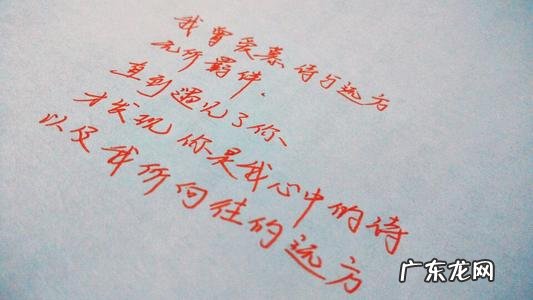 我曾爱慕诗与远方
无所羁绊.
直到遇见了你、
才发现你是我心中的诗
以及我所向往的远方
广东龙网